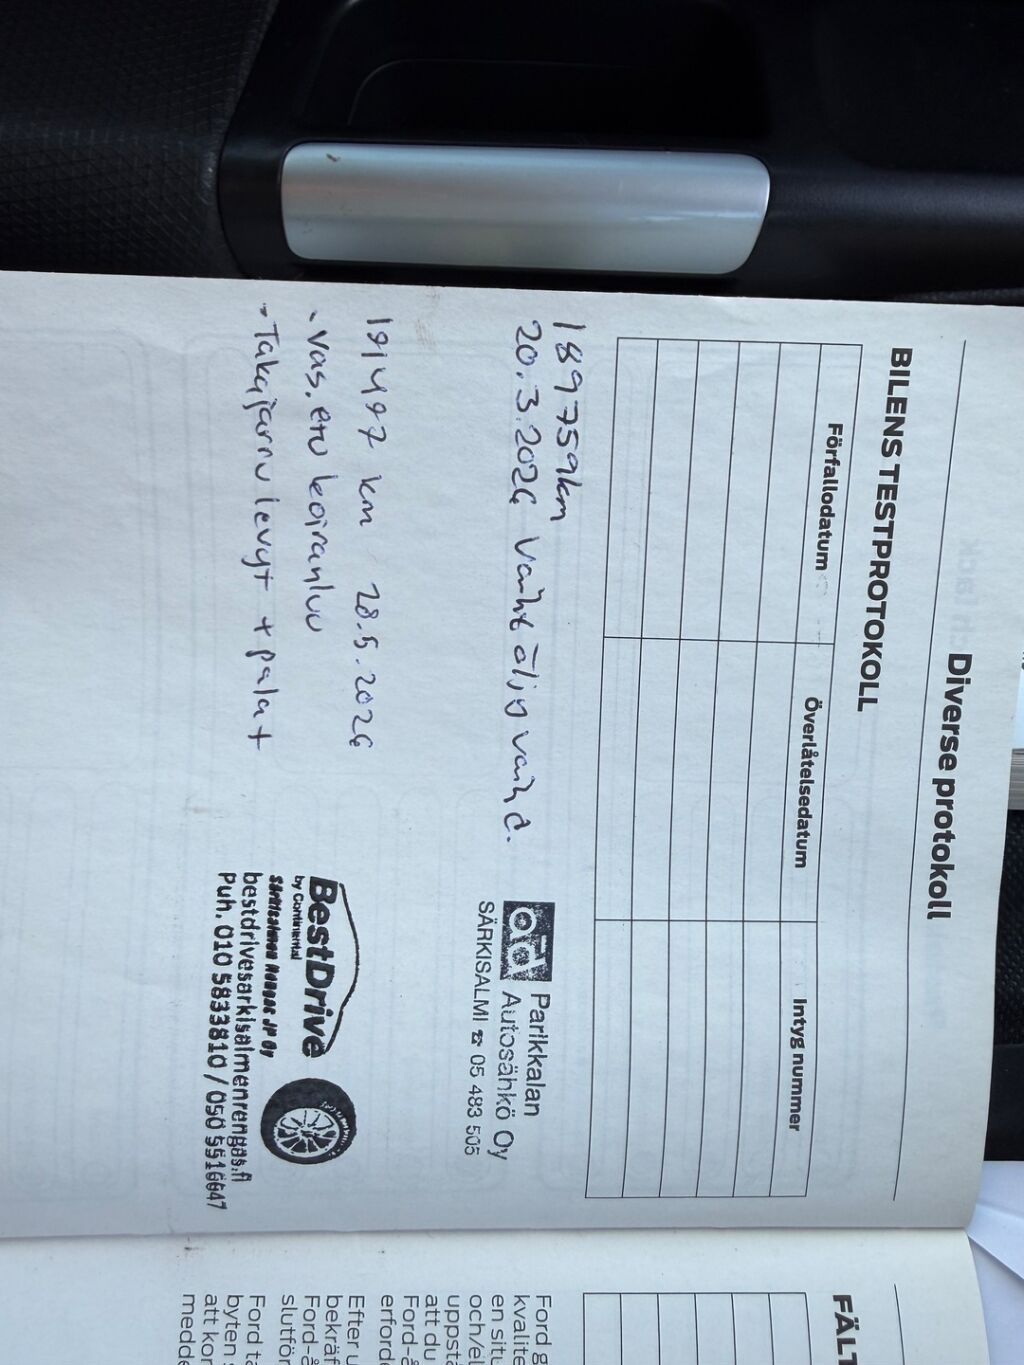 Diverse protokoll
BILENS TESTPROTOKOLL
Förfallodatum Överlåtelsedatum Intyg nummer
189759km
20.3.2026 vaiht öljy vaihd.
ad Parikkalan
Autosähkö Oy
SÄRKISALMI ☎ 05 483 505
191497 km 28.5.2026
- vas. etu koiranluu
- Takajarru levyt + palat
BestDrive
by Continental
Särkisalmen Rengas JP Oy
bestdrivesarkisalmenrengas.fi
Puh. 010 5833810 / 050 5516647
FÄLT
Ford g
kvalite
en situ
och/el
uppstå
att du
Ford-å
erforde
Efter u
bekräf
Ford-å
slutför
Ford ta
byten s
att kor
medde